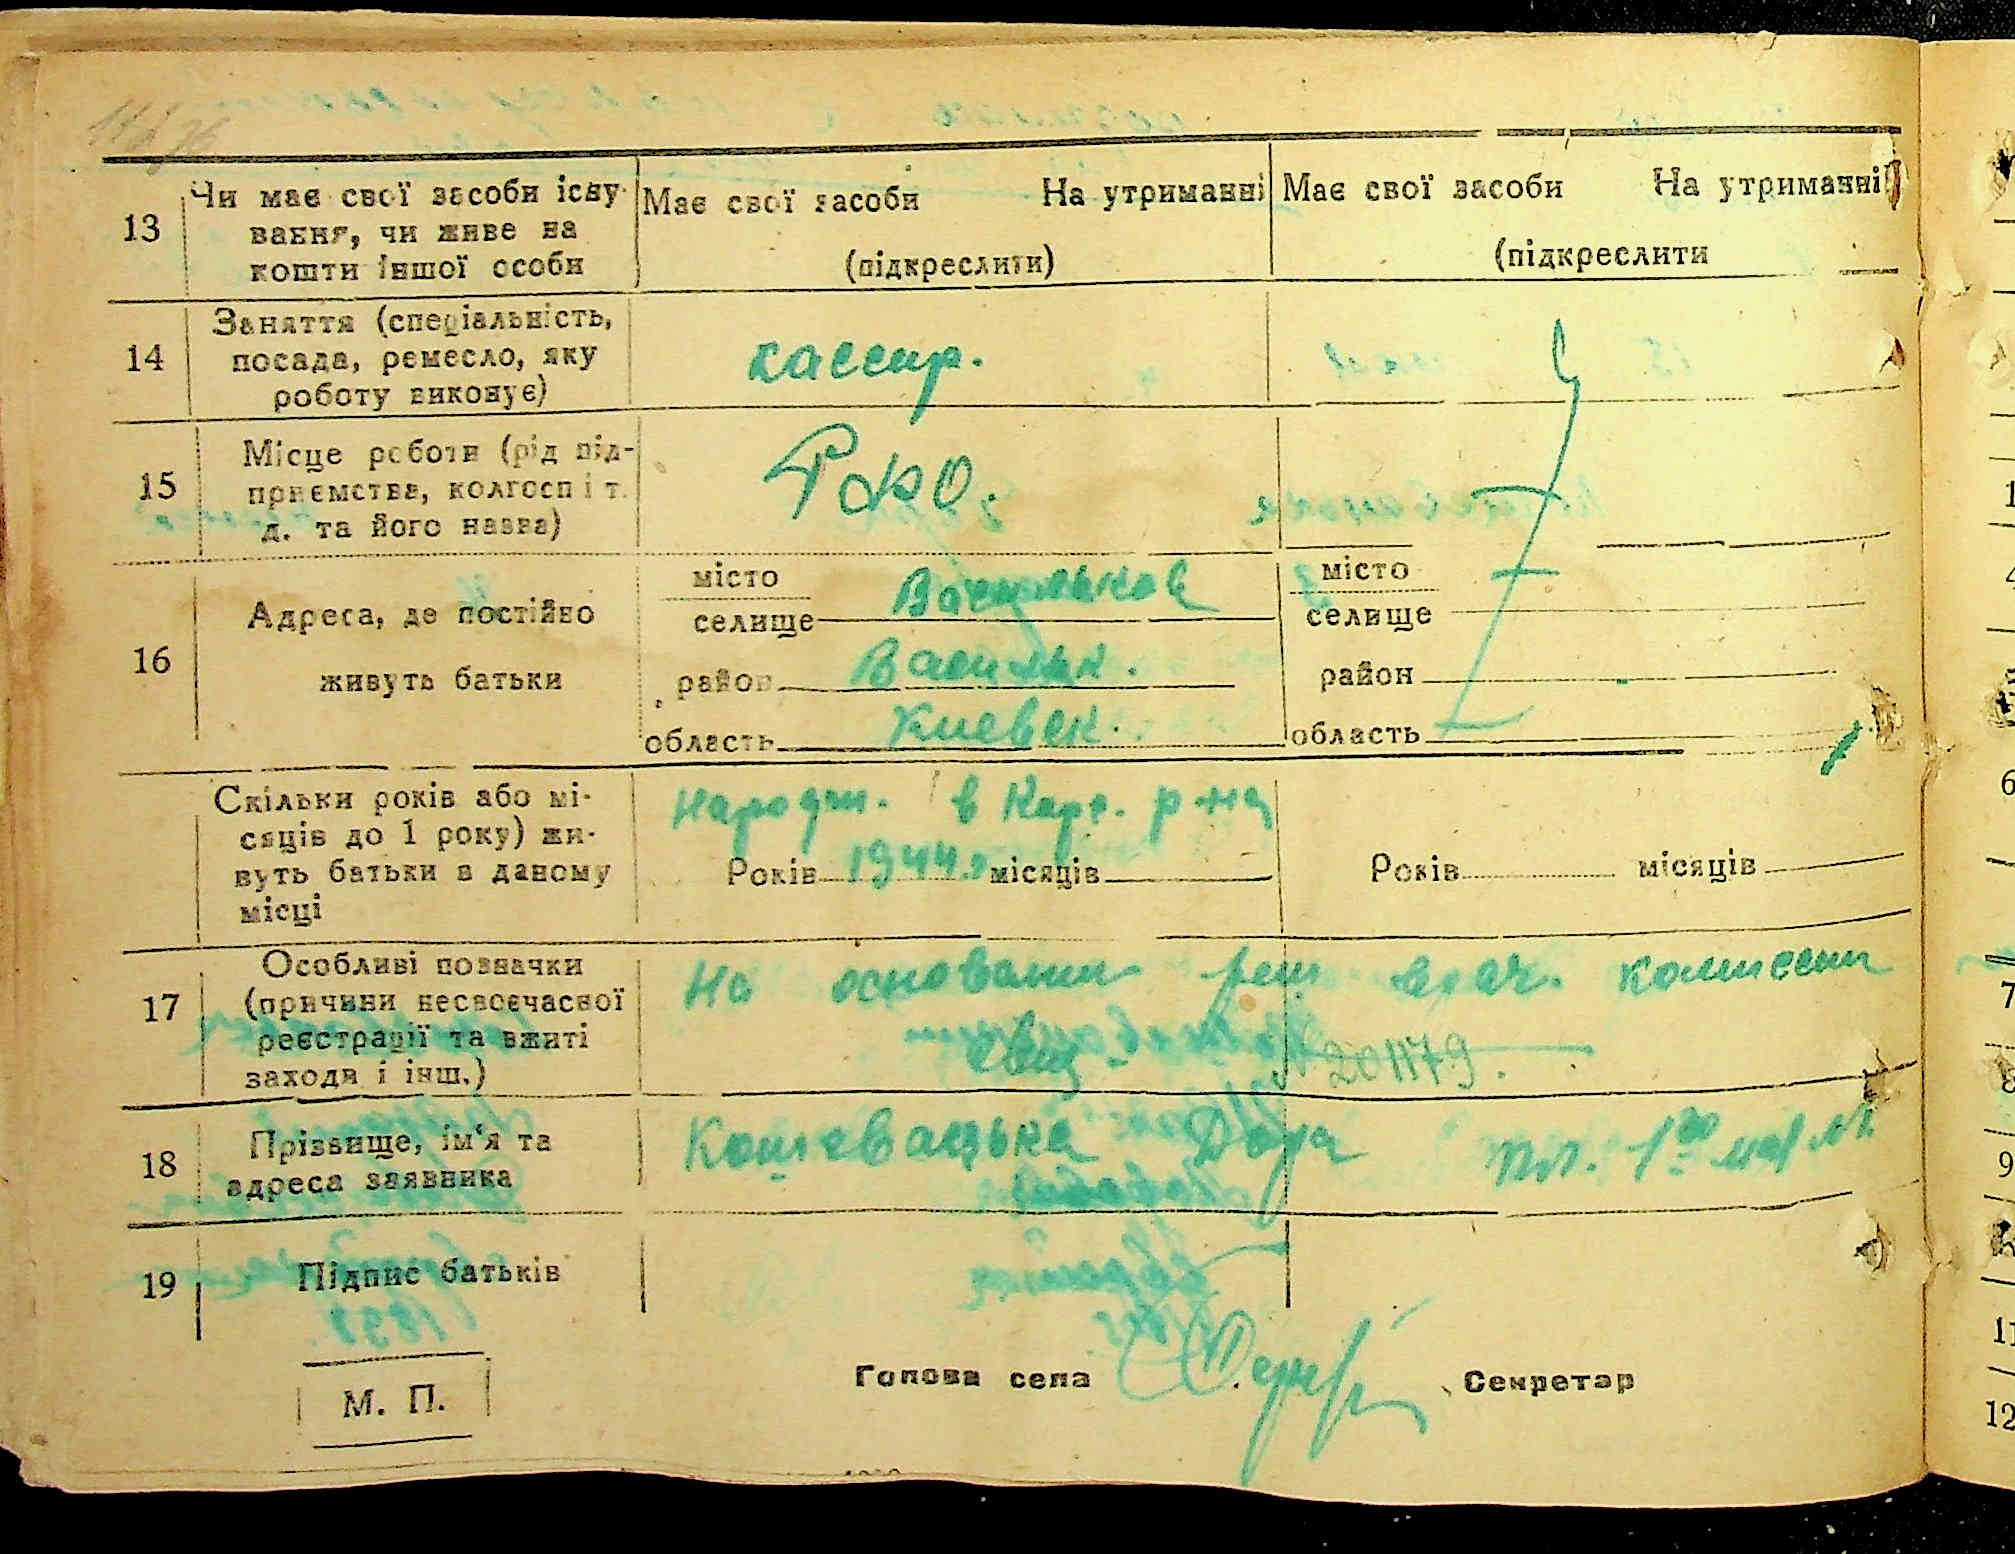 13
Чи має свої засоби існу-
вання, чи живе на
кошти іншої особи
Має свої засоби На утриманні
(підкреслити)
Має свої засоби На утриманні
(підкреслити
14
Заняття (спеціальність,
посада, ремесло, яку
роботу виконує)
кассир.
15
Місце роботи (рід під-
приємства, колгосп і т.
д. та його назва)
16
Адреса, де постійно
живуть батьки
місто
селище
Васильков
район Васильк.
область Киевск.
місто
селище
район
область
Скільки років або мі-
сяців до 1 року) жи-
вуть батьки в даному
місці
в р-на
Років 1944 місяців
Років місяців
17
Особливі позначки
(причини несвоєчасної
реєстрації та вжиті
заходи і інш.)
На основании реш врач. комиссии
№ 201179.
18
Прізвище, ім'я та
адреса заявника
Дора
19
Підпис батьків
М. П.
Голова села
Секретар